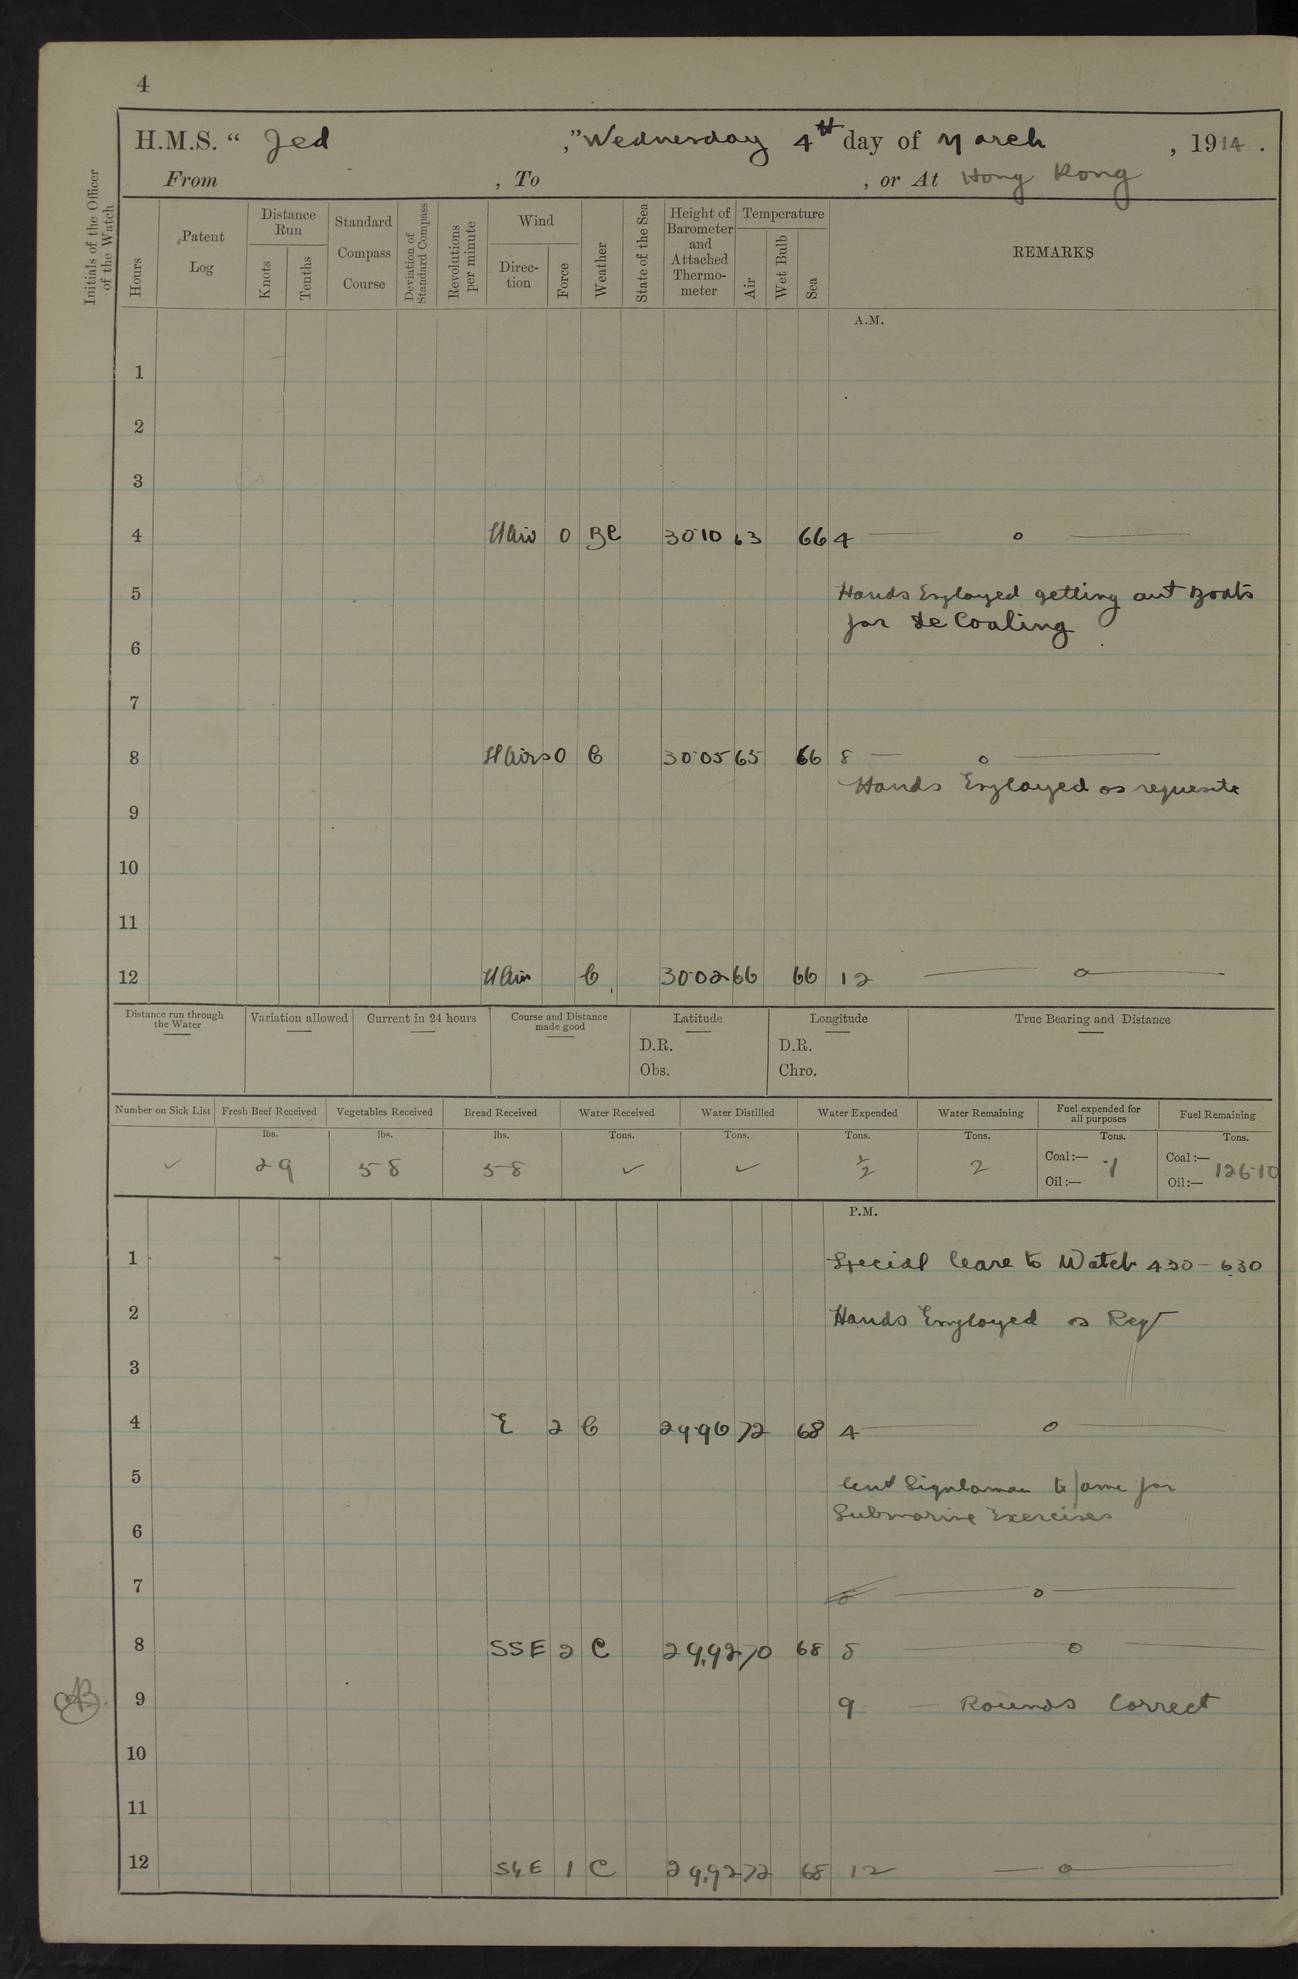 4
H.M.S. “ Jed ,” Wednesday 4th day of March , 1914 .
From , To , or At Hong Kong
Initials of the Officer of the Watch
Hours
Patent Log
Distance Run
Knots
Tenths
Standard Compass Course
Deviation of Standard Compass
Revolutions per minute
Wind
Direction
Force
Weather
State of the Sea
Height of Barometer and Attached Thermometer
Temperature
Air
Wet Bulb
Sea
REMARKS
A.M.
1
2
3
4 0 BC 30·10 63 66 4 — o —
5 Hands Employed getting out Boats
for De Coaling
6
7
8 0 C 30·05 65 66 8 — o —
Hands Employed as requisite
9
10
11
12 C 30·02 66 66 12 — o —
Distance run through the Water
Variation allowed
Current in 24 hours
Course and Distance made good
Latitude
D.R.
Obs.
Longitude
D.R.
Chro.
True Bearing and Distance
Number on Sick List Fresh Beef Received Vegetables Received Bread Received Water Received Water Distilled Water Expended Water Remaining Fuel expended for all purposes Fuel Remaining
lbs. lbs. lbs. Tons. Tons. Tons. Tons. Tons. Tons.
✓ 29 58 58 ✓ ✓ ½ 2 Coal:— ·1 Coal:— 126·10
Oil:— Oil:—
P.M.
1 Special leave to Watch 430 – 630
2 Hands Employed as Reqt
3
4 E 2 C 29·96 72 68 4 — o —
5 Lent Signalman to Fame for
Submarine Exercises
6
7 — o —
8 SSE 2 C 29.92 70 68 8 — o —
9 9 — Rounds Correct
10
11
12 1 C 29.92 72 68 12 — o —